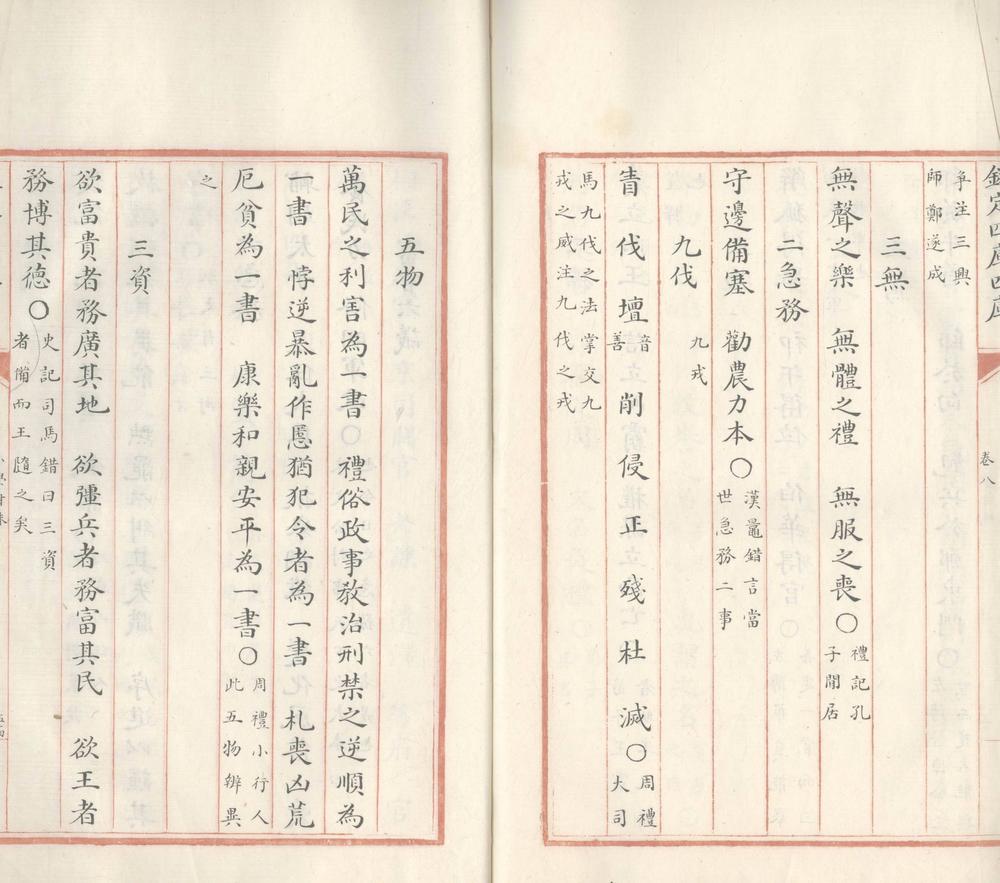 欽定四庫四庫
卷八
爭注三興
師鄭遂成
三無
無聲之樂　無體之禮　無服之喪〇禮記孔
子閒居
二急務
守邊備塞　勸農力本〇漢鼂錯言當
世急務二事
九伐九戎
眚伐壇音善削侵正殘杜滅〇周禮
大司
馬九伐之法掌交九
戎之威注九伐之戎
五物
萬民之利害為一書〇禮俗政事教治刑禁之逆順為
一書　悖逆暴亂作慝猶犯令者為一書　札喪凶荒
厄貧為一書　康樂和親安平為一書〇周禮小行人
此五物辨異
之
三資
欲富貴者務廣其地　欲彊兵者務富其民　欲王者
務博其德〇史記司馬錯曰三資
者備而王隨之矣